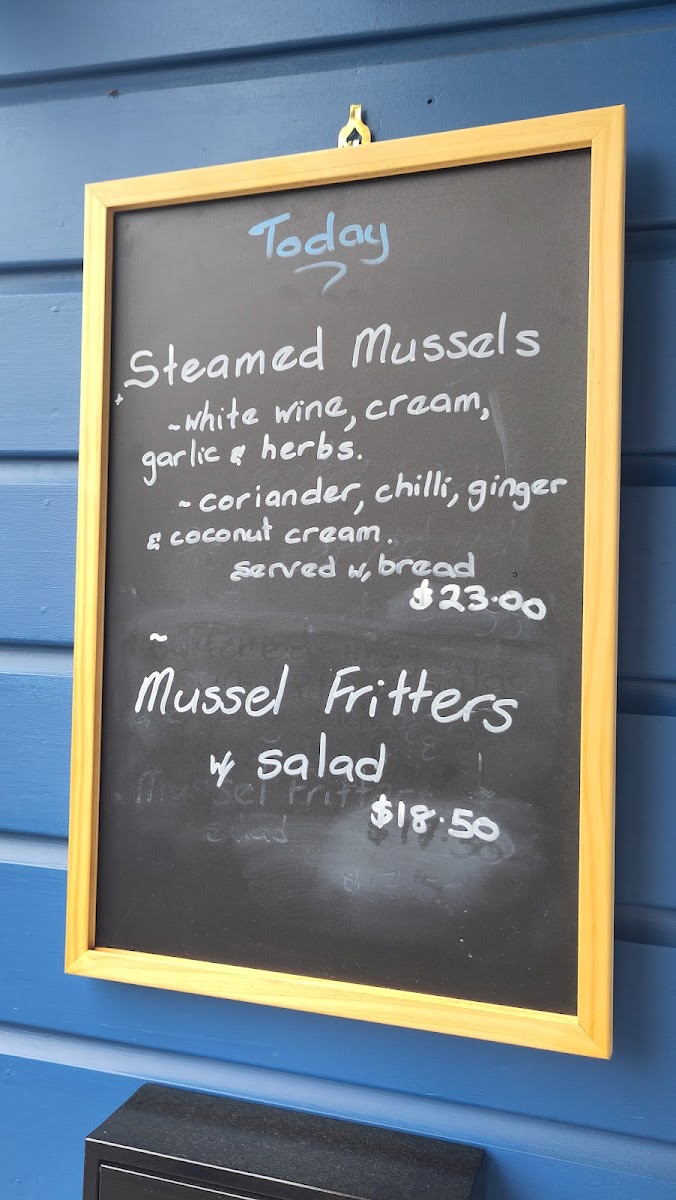 Today
Steamed Mussels
~white wine, cream,
garlic & herbs.
~coriander, chilli, ginger
& coconut cream.
served w, bread
$23.00
~
Mussel Fritters
w/ salad
$18.50